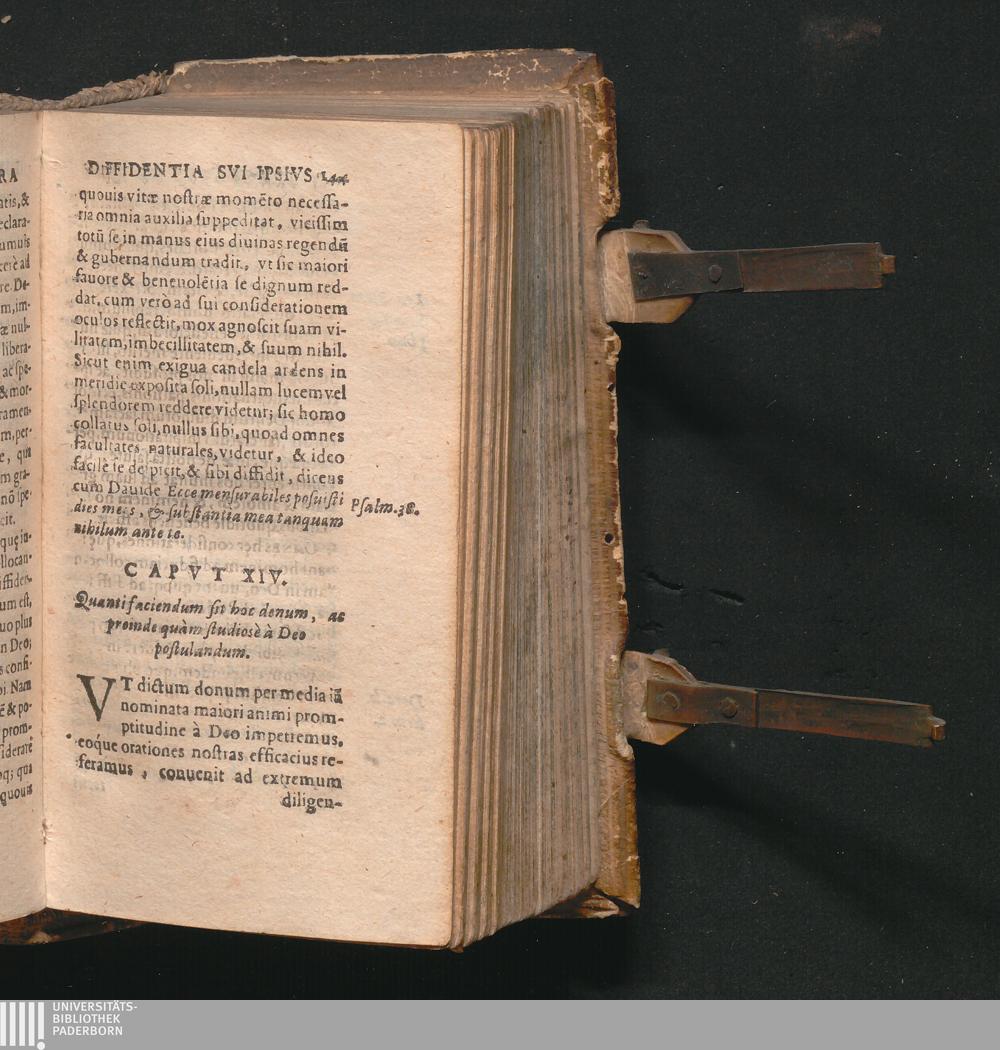 DIFFIDENTIA SVI IPSIVS 144
quouis vitæ nostræ momẽto necessa-
ria omnia auxilia suppeditat, vicissim
totũ se in manus eius diuinas regendũ
& gubernandum tradit, vt sic maiori
fauore & beneuolẽtia se dignum red-
dat, cum verò ad sui considerationem
oculos reflectit, mox agnoscit suam vi-
litatem, imbecillitatem, & suum nihil.
Sicut enim exigua candela ardens in
meridie exposita soli, nullam lucem vel
splendorem reddere videtur; sic homo
collatus soli, nullus sibi, quoad omnes
facultates naturales, videtur, & ideo
facilè se despicit, & sibi diffidit, dicens
cum Dauide Ecce mensurabiles posuisti
dies meos, & substantia mea tanquam
nihilum ante te.
Psalm. 38.
CAPVT XIV.
Quanti faciendum sit hoc donum, ac
proinde quàm studiosè à Deo
postulandum.
VT dictum donum per media iã
nominata maiori animi prom-
ptitudine à Deo impetremus,
eoque orationes nostras efficacius re-
feramus, conuenit ad extremum
diligen-
RA
atis, &
eclara-
umuis
cerè ad
re. De-
m, im-
æ nul-
libera-
ac spe-
& mor-
ramen-
m, per-
e, quã
m gra-
nõ spe-
cit.
quę in-
llocan-
iffiden-
um est,
uo plus
n Deo;
s confi-
bi. Nam
ẽ & po-
prom-
siderare
oq; qua
quouis
UNIVERSITÄTS-
BIBLIOTHEK
PADERBORN